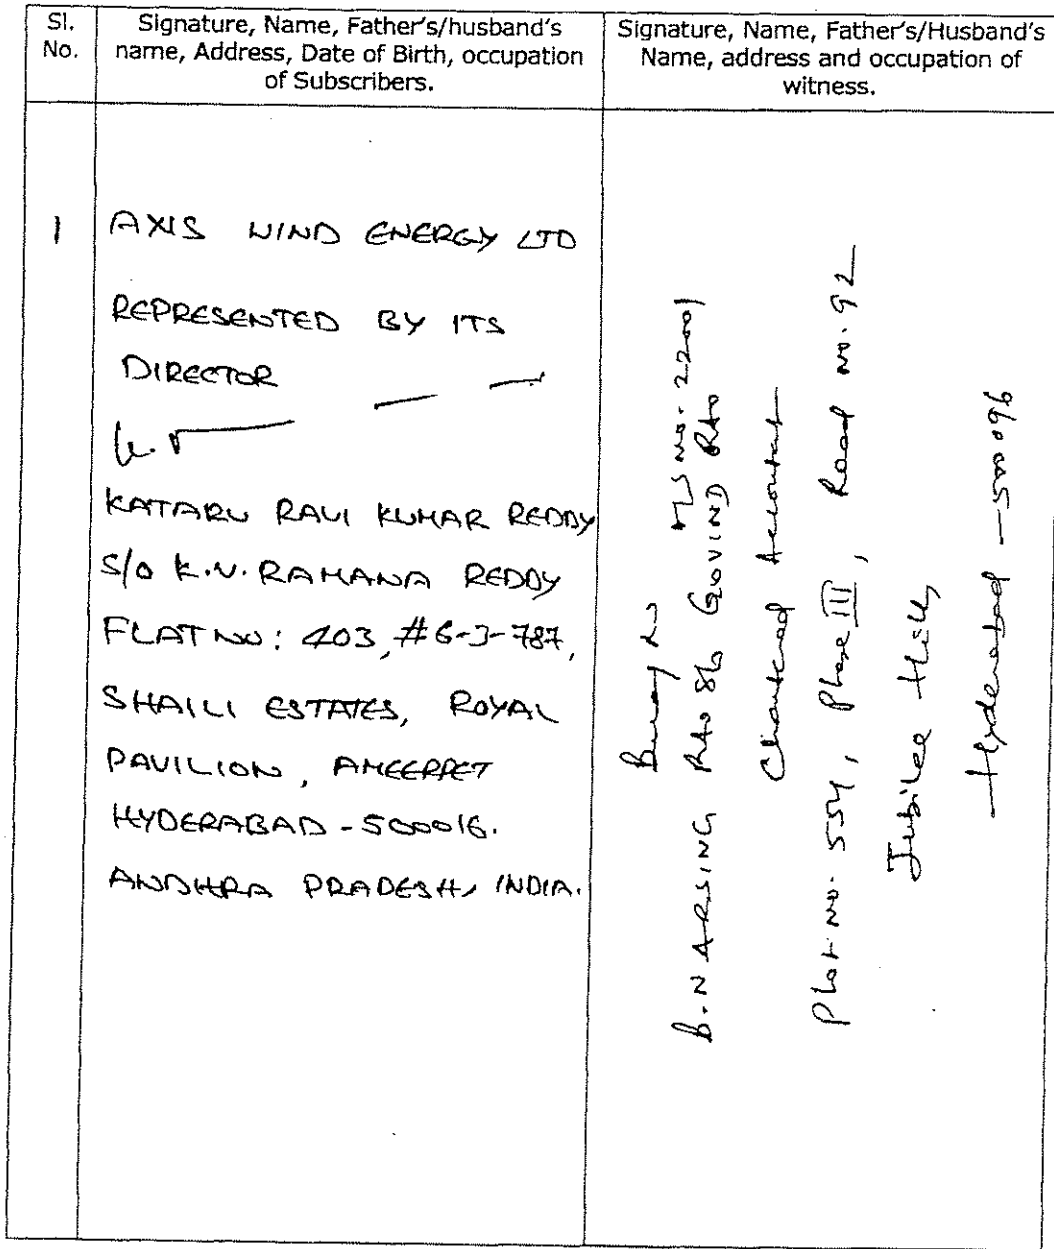 Sl.
No.
Signature, Name, Father's/husband's
name, Address, Date of Birth, occupation
of Subscribers.
Signature, Name, Father's/Husband's
Name, address and occupation of
witness.
1
AXIS WIND ENERGY LTD
REPRESENTED BY ITS
DIRECTOR
KATARU RAVI KUMAR REDDY
S/O K.V. RAMANA REDDY
FLAT NO: 403, #6-3-787,
SHAILI ESTATES, ROYAL
PAVILION, AMEERPET
HYDERABAD - 500016.
ANDHRA PRADESH, INDIA.
M S NO. 22001
B. NARSING RAO S/o GOVIND RAO
Chartered Accountant
Plot no. 554, Phase III, Road no. 92
Jubilee Hills,
Hyderabad - 500096